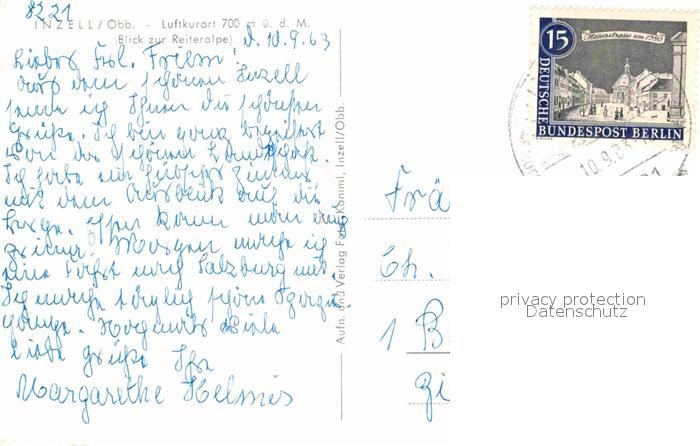 8221
INZELL/Obb. - Luftkurort 700 m ü. d. M.
(Blick zur Reiteralpe)
d. 10.9.63
Liebes Frl. Friem!
Aus dem schönen Inzell
sende ich Ihnen die schönsten
Grüße. Ich bin ganz begeistert
von der schönen Landschaft.
Ich habe ein hübsches Zimmer
mit dem Ausblick auf die
Berge. Essen kann man
prima. Morgen mache ich
eine Fahrt nach Salzburg mit.
Ich mache täglich schöne Spazier-
gänge. Nochmals viele
liebe Grüße Ihre
Margarethe Helmis
Aufn. und Verlag Foto-Kamml, Inzell/Obb.
15
Hauerstrasse um 1780
DEUTSCHE
BUNDESPOST BERLIN
10.9.63
Frä
Ch.
1 B
privacy protection
Datenschutz